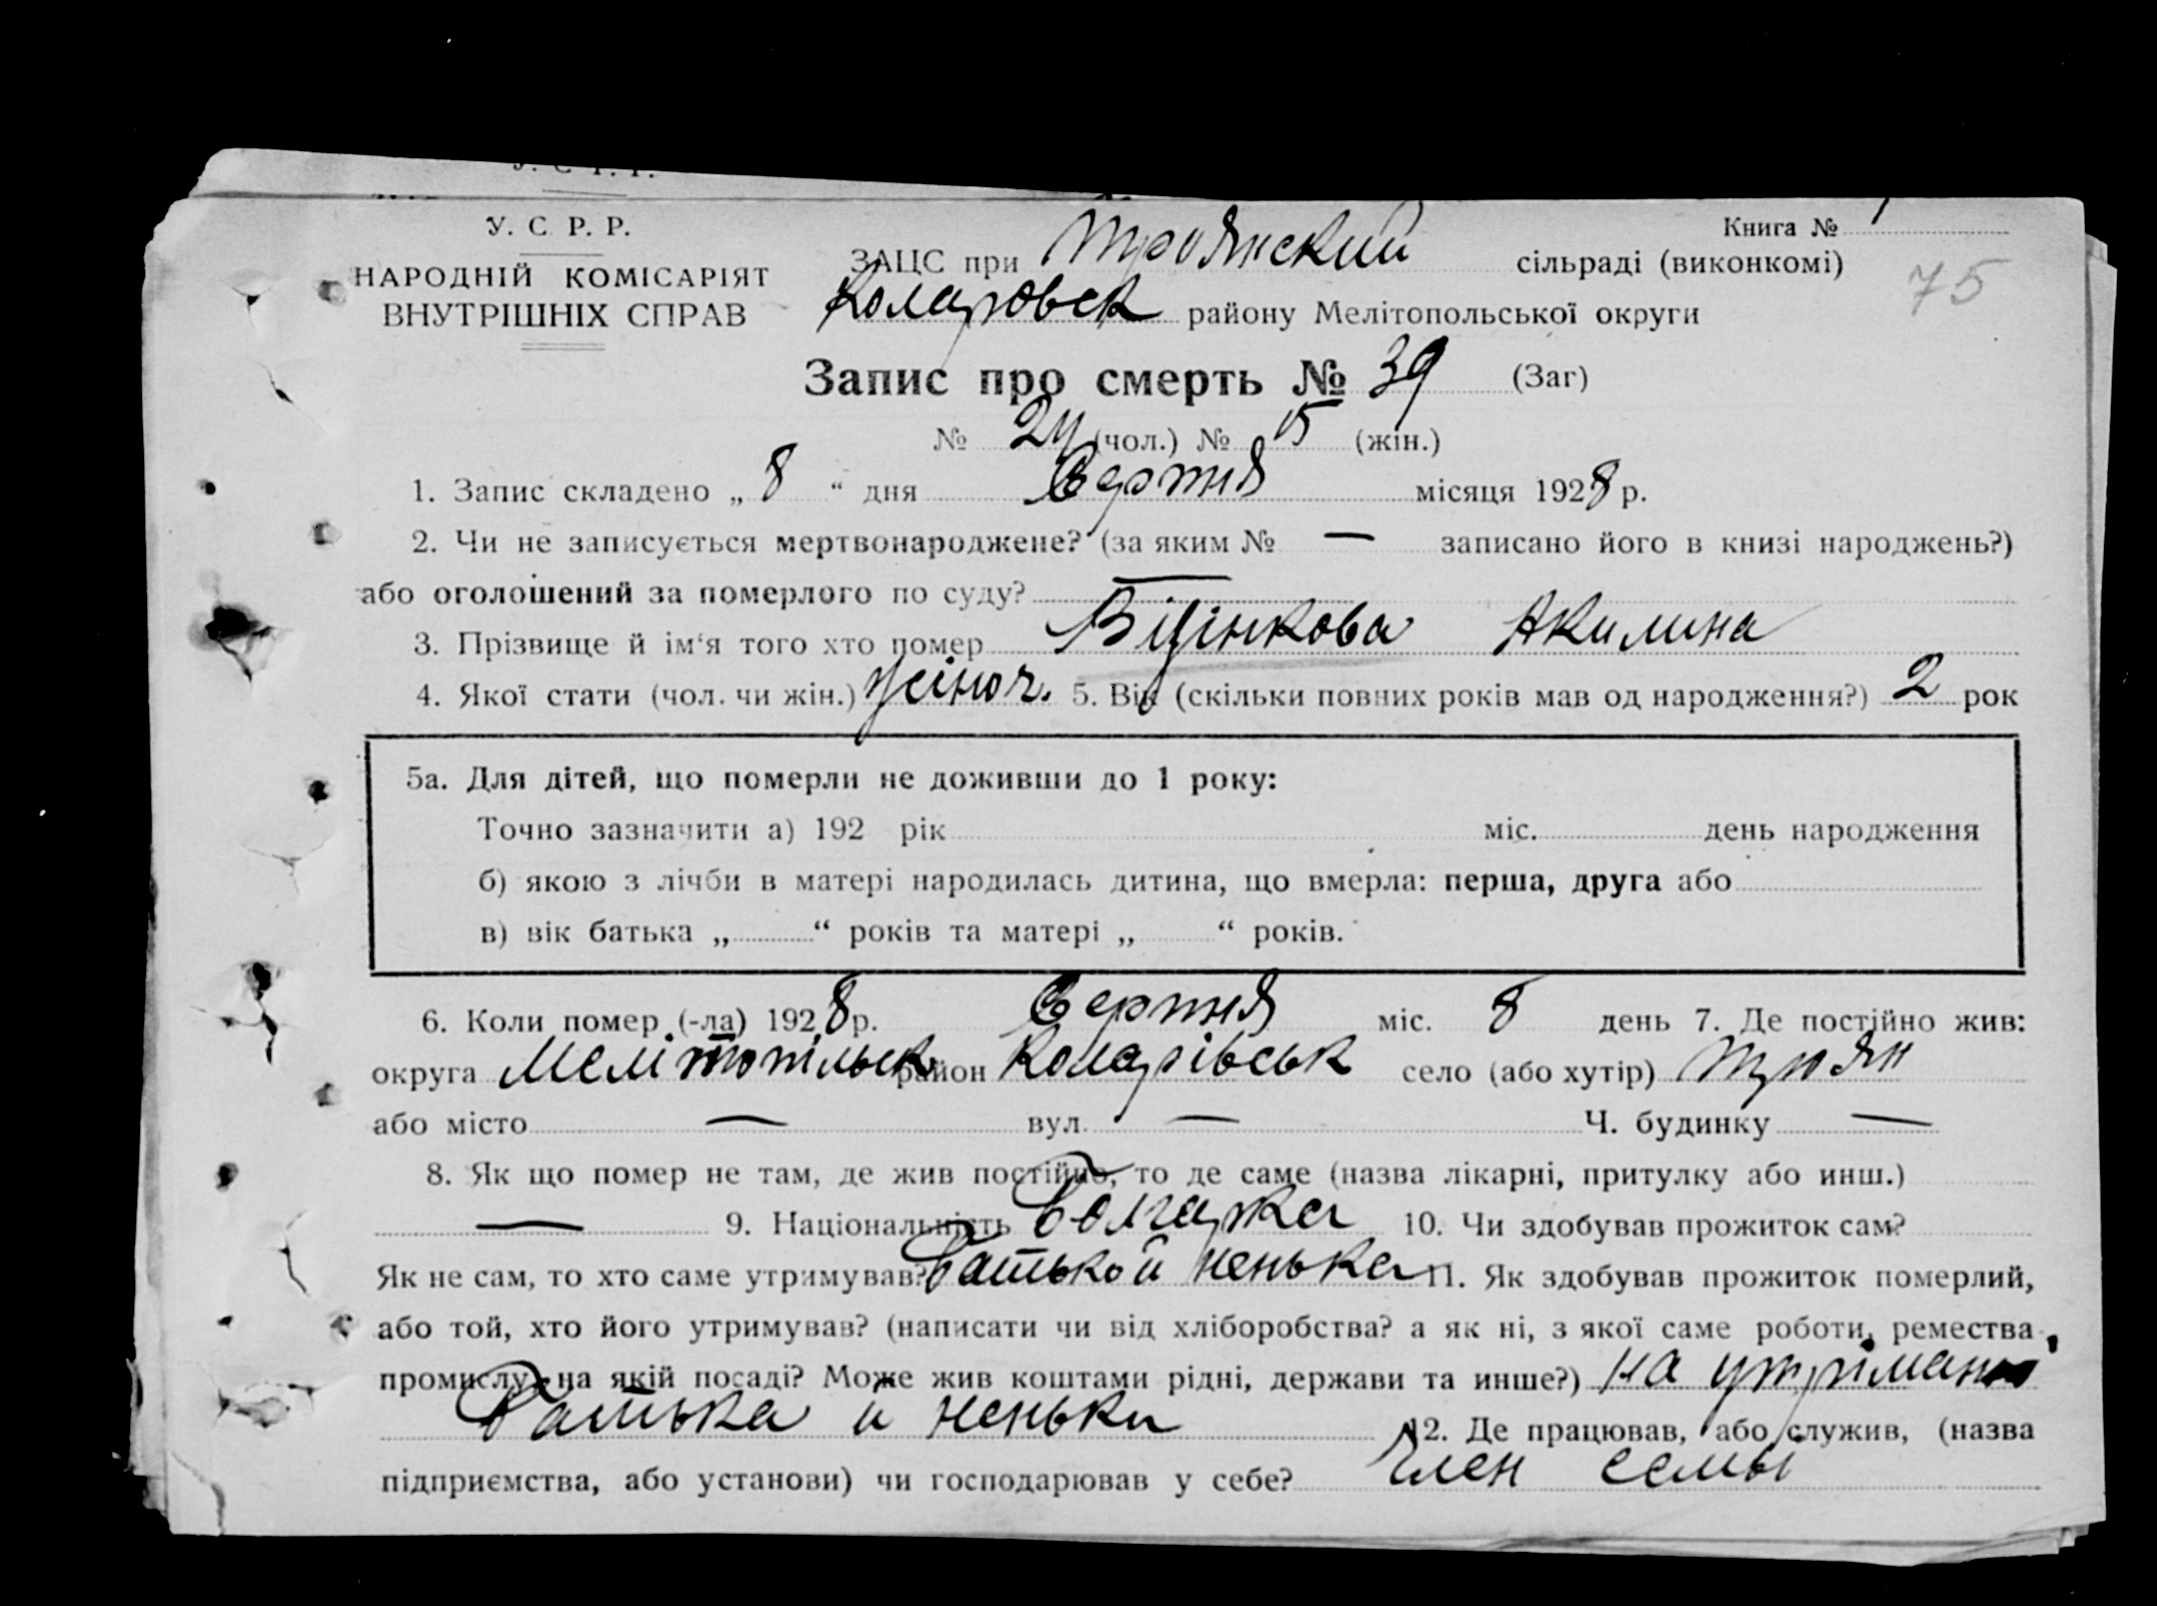 У. С. Р. Р.
НАРОДНІЙ КОМІСАРІЯТ
ВНУТРІШНІХ СПРАВ
Книга № 1
75
ЗАЦС при Троянский сільраді (виконкомі)
Коларовск району Мелітопольської округи
Запис про смерть № 39 (Заг)
№ 24 (чол.) № 15 (жін.)
1. Запис складено „ 8 “ дня Серпня місяця 1928 р.
2. Чи не записується мертвонароджене? (за яким № — записано його в книзі народжень?)
або оголошений за померлого по суду? —
3. Прізвище й ім‘я того хто помер Акилина
4. Якої стати (чол. чи жін.) жіноч. 5. Вік (скільки повних років мав од народження?) 2 рок
5а. Для дітей, що померли не доживши до 1 року:
Точно зазначити а) 192 рік міс. день народження
б) якою з лічби в матері народилась дитина, що вмерла: перша, друга або
в) вік батька „ “ років та матері „ “ років.
6. Коли помер (-ла) 1928 р. Серпня міс. 8 день 7. Де постійно жив:
округа Мелітопільск район Коларівськ село (або хутір) Троян
або місто — вул. — Ч. будинку —
8. Як що помер не там, де жив постійно, то де саме (назва лікарні, притулку або инш.)
— 9. Національність Болгарка 10. Чи здобував прожиток сам?
Як не сам, то хто саме утримував? Батько й ненька 11. Як здобував прожиток померлий,
або той, хто його утримував? (написати чи від хліборобства? а як ні, з якої саме роботи, ремества,
промислу, на якій посаді? Може жив коштами рідні, держави та инше?) на утріманні
Батька й неньки 12. Де працював, або служив, (назва
підприємства, або установи) чи господарював у себе? Член семьі